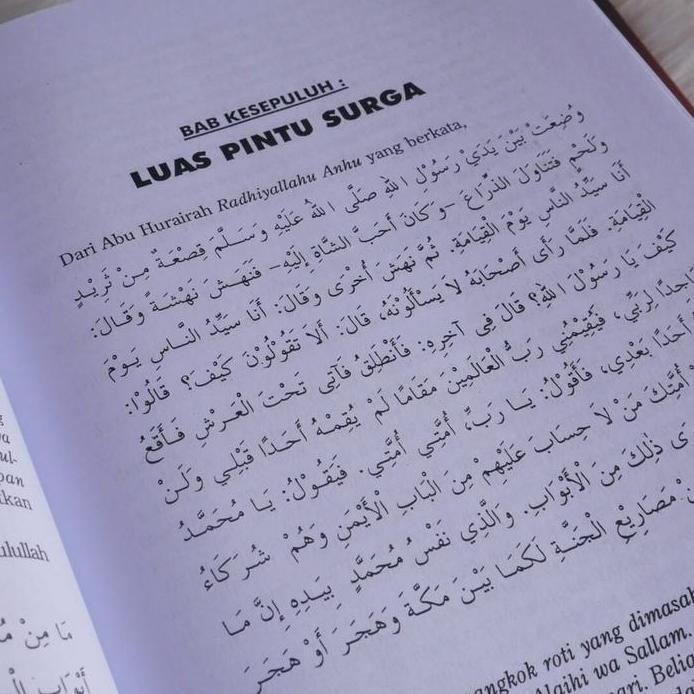 BAB KESEPULUH :
LUAS PINTU SURGA
Dari Abu Hurairah Radhiyallahu Anhu yang berkata,
وُضِعَتْ بَيْنَ يَدَيْ رَسُوْلِ اللهِ صَلَّى اللهُ عَلَيْهِ وَسَلَّمَ قِصْعَةٌ مِنْ ثَرِيْدٍ
وَلَحْمٍ فَتَنَاوَلَ الذِّرَاعَ –وَكَانَ أَحَبَّ الشَّاةِ إِلَيْهِ– فَنَهَسَ نَهْشَةً وَقَالَ:
أَنَا سَيِّدُ النَّاسِ يَوْمَ الْقِيَامَةِ. ثُمَّ نَهَشَ أُخْرَى وَقَالَ: أَنَا سَيِّدُ النَّاسِ يَوْمَ
الْقِيَامَةِ. فَلَمَّا رَأَى أَصْحَابَهُ لاَ يَسْأَلُوْنَهُ، قَالَ: أَلاَ تَقُوْلُوْنَ كَيْفَ؟ قَالُوْا:
كَيْفَ يَا رَسُوْلَ اللهِ؟ قَالَ فِي آخِرِهِ: فَأَنْطَلِقُ فَآتِى تَحْتَ الْعَرْشِ فَأَقَعُ
لِرَبِّي، فَيُقِيْمُنِي رَبُّ الْعَالَمِيْنَ مَقَامًا لَمْ يُقِمْهُ أَحَدًا قَبْلِي وَلَنْ
أَحَدًا بَعْدِي، فَأَقُوْلُ: يَا رَبِّ، أُمَّتِي أُمَّتِي. فَيَقُوْلُ: يَا مُحَمَّدُ
أُمَّتِكَ مَنْ لاَ حِسَابَ عَلَيْهِمْ مِنَ الْبَابِ الْأَيْمَنِ وَهُمْ شُرَكَاءُ
ذَلِكَ مِنَ الْأَبْوَابِ. وَالَّذِي نَفْسُ مُحَمَّدٍ بِيَدِهِ إِنَّ مَا
مَصَارِيْعِ الْجَنَّةِ لَكَمَا بَيْنَ مَكَّةَ وَهَجَرَ أَوْ هَجَرَ
roti yang
wa Sallam.
ما مِنْ